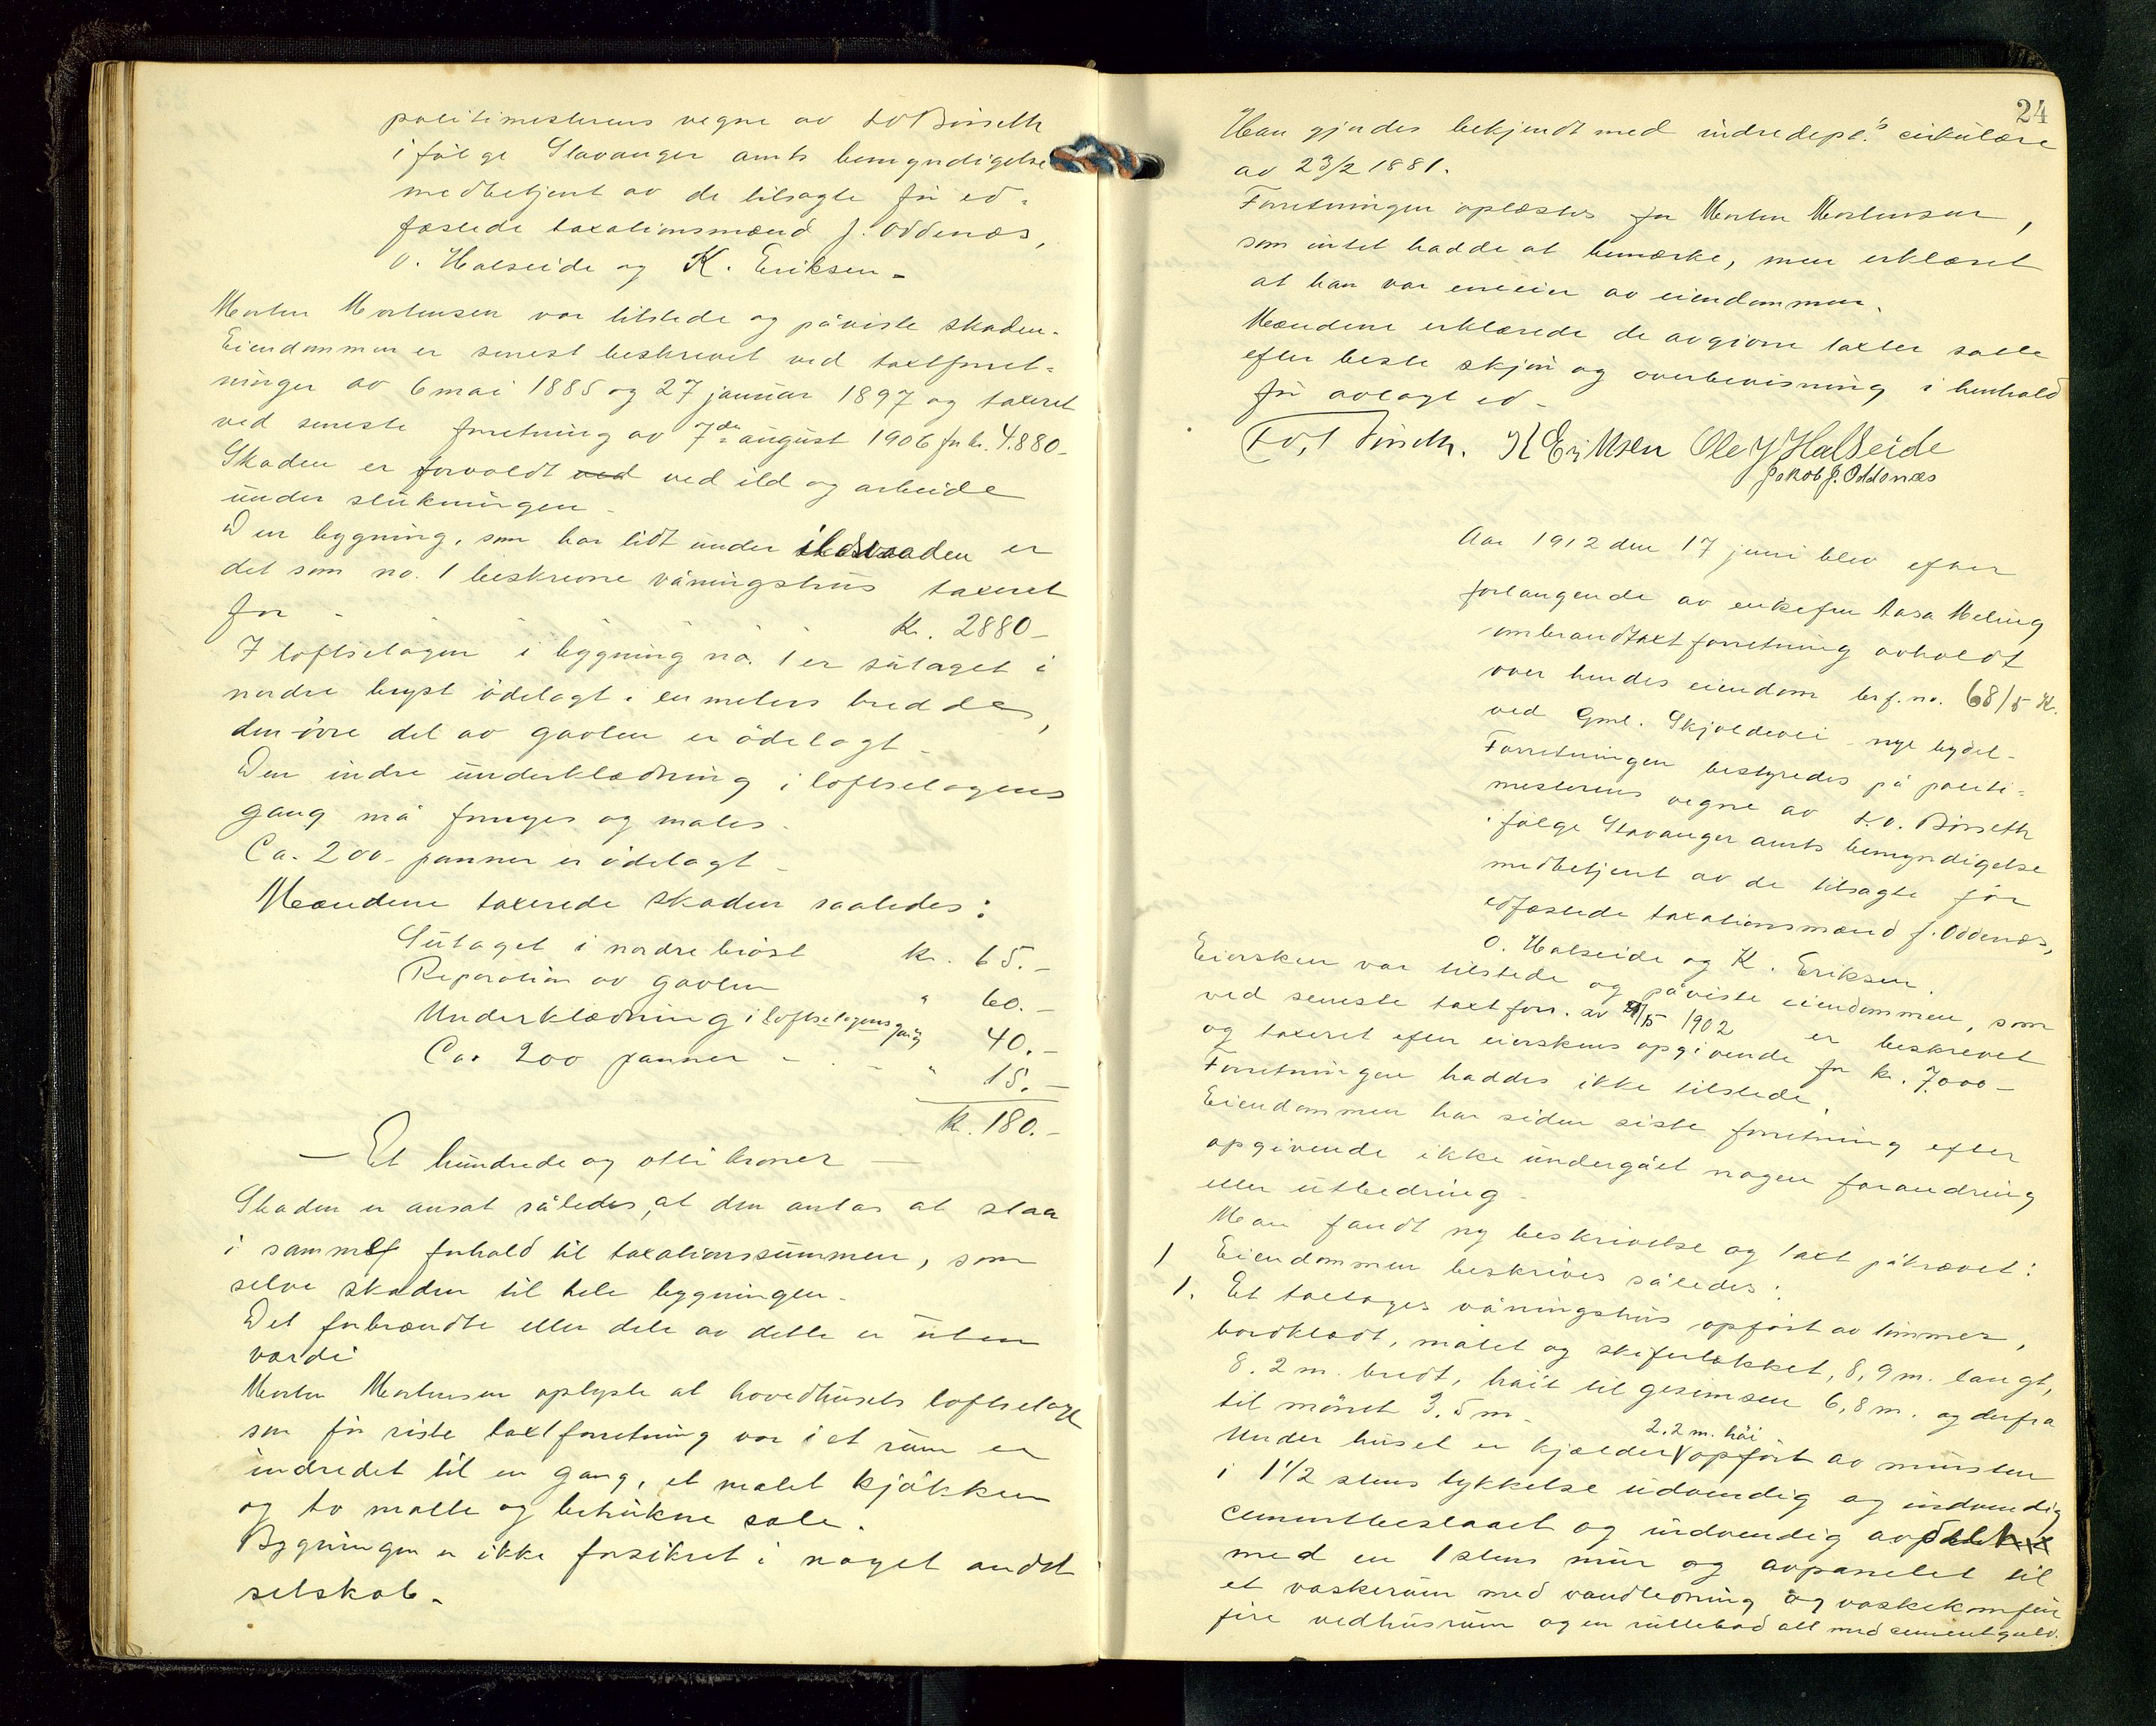 politimesterens vegne av L. O. Börseth
i følge Stavanger amts bemyndigelse
medbetjent av de tilsagte før ed-
fæstede taxationsmænd J. Oddenæs,
O. Halseide og K. Eriksen-
Morten Mortensen var tilstede og påviste skaden.
Eiendommen er senest beskrevet ved taxtforret-
ninger av 6 mai 1885 og 27 januar 1897 og taxeret
ved seneste forretning av 7de august 1906 for kr. 4.880-
Skaden er forvoldt ved ved ild og arbeide
under slukningen-
Den bygning, som har lidt under ildsvaaden er
det som no. 1 beskrevne våningshus taxeret
for - Kr. 2880-
I loftsetagen i bygning no. 1 er sutaget i
nordre bryst ödelagt i en meters bredde,
den övre del av gavlen er ödelagt-
Den indre underklædning i loftsetagens
gang må fornyes og males.
Ca. 200- panner er ödelagt-
Mændene taxerede skaden saaledes:
Sutaget i nordre bröst kr. 65.-
Reparation av gavlen " 60.-
Underklædning i loftsetagens gang 40.-
Ca. 200 panner - - " 15.-
Kr. 180.-
- Et hundrede og otti kroner -
Skaden er ansat således, at den antas at staa
i samme forhold til taxationssummen, som
selve skaden til hele bygningen-
Det forbrændte eller dele av dette er uten
værdi
Morten Mortensen oplyste at hovedhusets loftsetage
som før siste taxtforretning var i et rum er
indredet til en gang, et malet kjökken
og to malte og betrukne sale.
Bygningen er ikke forsikret i noget andet
selskab-
24
Han gjordes bekjendt med indredept.s cirkulære
av 23/2 1881.
Forretningen oplæstes for Morten Mortensen,
som intet hadde at bemærke, men erklæret
at han var eneeier av eiendommen.
Mændene erklærede de avgivne taxter satte
efter beste skjön og overbevisning i henhold
før avlagt ed-
L. O. Börseth. K Eriksen Ole J Halseide
Jakob J. Oddenæs
Aar 1912 den 17 juni blev efter
forlangende av enkefru Aasa Meling
ombrandtaxtforretning avholdt
over hendes eiendom brf. no. 68/5 K.
ved Gml. Skjoldevei - nye bydel-
Forretningen bestyredes på politi-
mesterens vegne av L. O. Börseth
i følge Stavanger amts bemyndigelse
medbetjent av de tilsagte før
edfæstede taxationsmænd J. Oddenæs,
O. Halseide og K. Eriksen.
Eiersken var tilstede og påviste eiendommen, som
ved seneste taxtforr. av /5 1902 er beskrevet
og taxeret efter eierskens opgivende for kr. 7.000-
Forretningen haddes ikke tilstede.
Eiendommen har siden siste forretning efter
opgivende ikke undergået nogen forandring
eller utbedring-
Man fandt ny beskrivelse og taxt påkrævet:
1 Eiendommen beskrives således:
1. Et toetages våningshus opfört av tömmer,
bordklædt, malet og skifertækket, 8,9 m. langt,
8.2 m. bredt, höit til gesimsen 6,8 m. og derfra
til mönet 3.5 m-
Under huset er kjælder 2.2 m. höi opfört av mursten
i 1 1/2 stens tykkelse udvendig og indvendig
cementbeslaaet og indvendig avdelt
med en 1 stens mur og avpanelet til
et vaskerum med vandledning og vaskekomfur
fire vedhusrum og en rullebod alt med cementgulv.